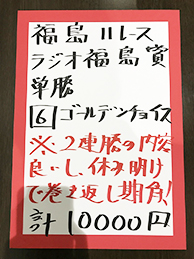 福島11レース
ラジオ福島賞
単勝
6 ゴールデンチョイス
※、2連勝の内容
良いし、休み明け
で巻き返し期角!
計10000円